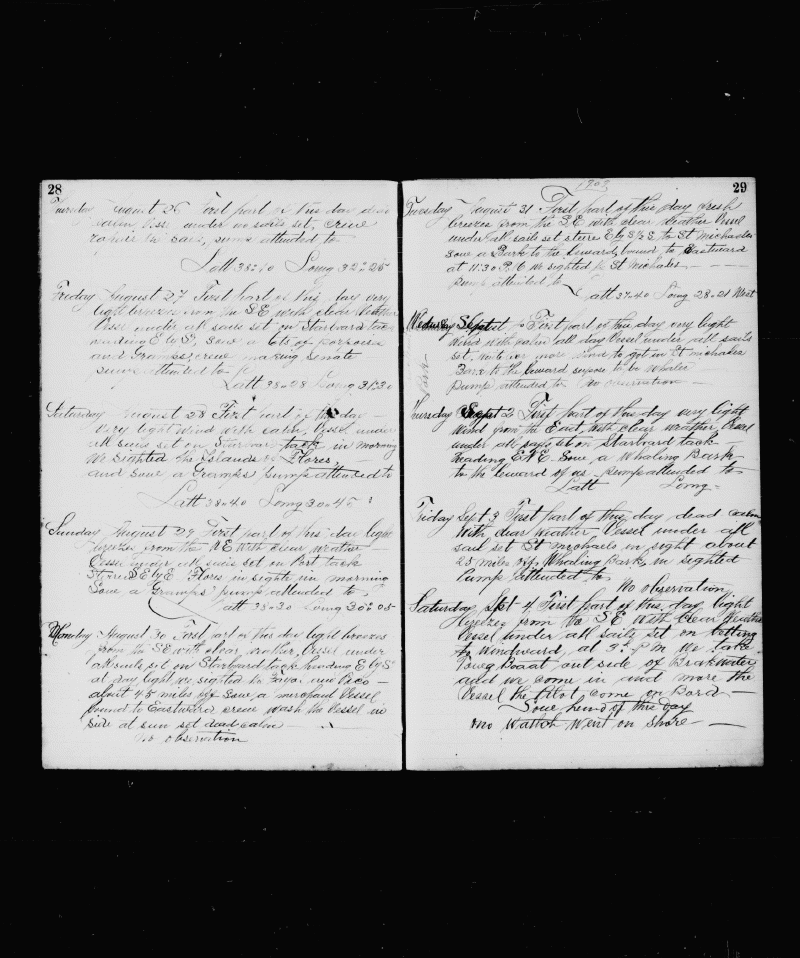 28
Thursday August 26 First part of this day dead
calm Vessel under no sails set, crew
sails, pump attended to
Latt 38-10 Long 32-25
Friday August 27 First part of this day very
light breezes from the S.E with clear Weather
Vessel under all sails set on Starbard tack
heading E by S, Saw a lots of porpoises
and Gramps, crew making Senate
pump attended to
Latt 38-28 Long 31-30
Saturday August 28 First part of this day
Very light wind with calm, Vessel under
all sails set on Starbard tack in morning
We sighted the Islands of Flores,
and Saw a Gramps pump attended to
Latt 38-40 Long 30-45
Sunday August 29 First part of this day light
breezes from the NE with clear weather
Vessel under all sails set on Port tack
Stered SE by E Flores in sight in morning
Saw a Gramps pump attended to
Latt 38-20 Long 30-05
Monday August 30 First part of this day light breezes
from the SE with clear weather, Vessel under
all sails set on Starbard tack heading E by S
at day light we sighted to Fayal and Pico
about 45 miles off Saw a merchant Vessel
bound to Eastward crew wash the Vessel in
side at sun set dead calm
No observation
1909
29
Tuesday August 31 First part of this day fresh
breezes from the S.E with clear Weather Vessel
under all sails set stered E by S½S to St Michaels
Saw a Bark to the Leward, bound to Eastward
at 11.30 P.M we sighted to St Michales
Pump attended to
Latt 37-40 Long 28-21 West
Wednesday Sept 1 First part of this day very light
Wind with calm all day Vessel under all sails
set, more wind to get in St michales
Bark to the leward supose to be whaler
Pump attended to No observation
Bark
Thursday Sept 2 First part of this day very light
wind from the East, with clear weather, Vessel
under all sails set on Starbard tack
heading ENE Saw a Whaling Bark
to the leward of us pump attended to
Latt Long
Friday Sept 3 First part of this day dead calm
With clear weather Vessel under all
sail set St michaels in sight about
25 miles off, Whaling Bark in sighted
Pump attended to
No observation
Saturday Sept 4 First part of this day light
breezes from the SE with Clear Weather
Vessel under all sails set on betting
to windward, at 3. P.M we take
Towg Boat out side of Brakwater
and we come in and more the
Vessel the Pilot, come on Bord
So we hend of this day
no wattch went on shore